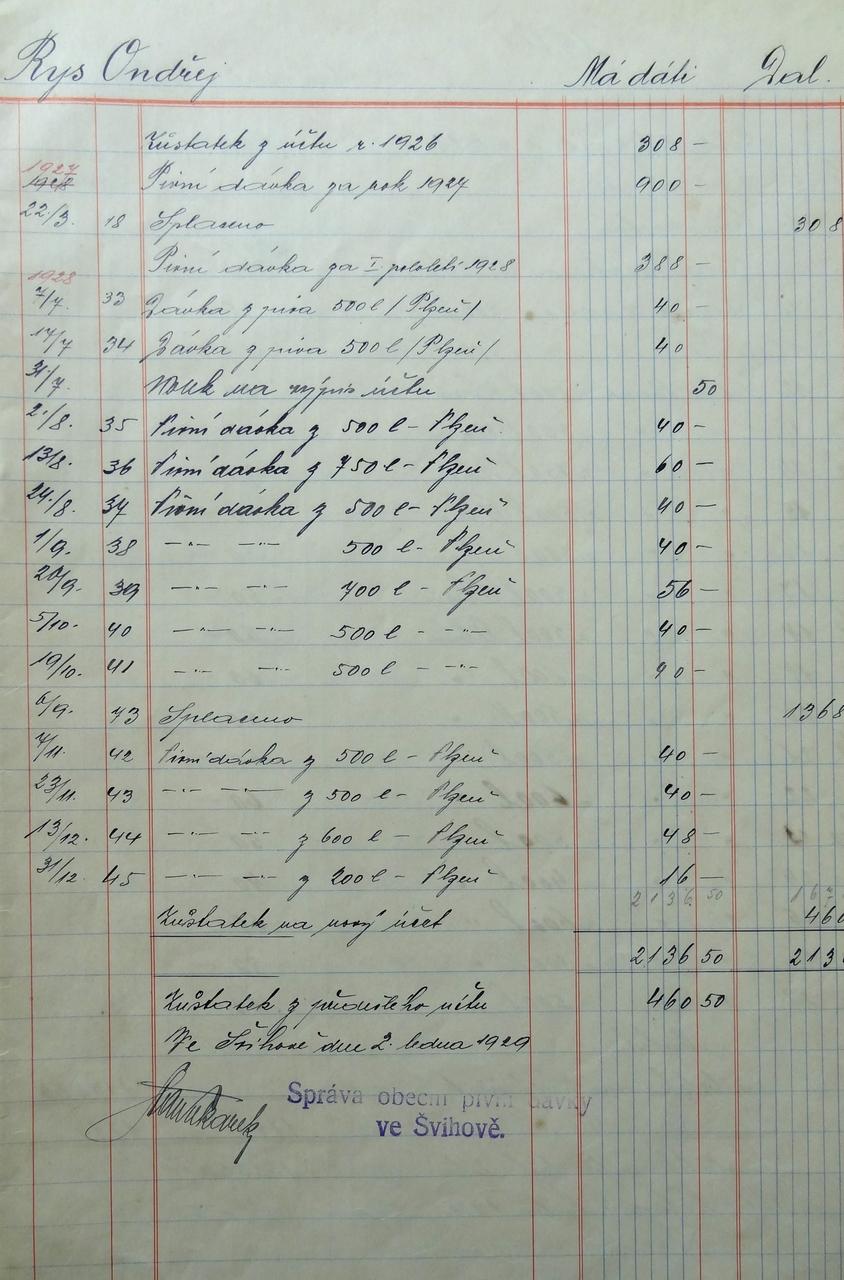 Rys Ondřej Má dáti Dal.
Zůstatek z účtu r. 1926 308 —
1927
1928 Pivní dávka za rok 1927 900 —
22./3. 18 Splaceno 308
Pivní dávka za I pololetí 1928 388 —
1928
7/7. 33 Dávka z piva 500 l / Plzeň / 40 -
17/7 34 Dávka z piva 500 l / Plzeň / 40
31/7 Kolek na výpis účtu 50
2./8. 35 Pivní dávka z 500 l - Plzeň 40 -
13/8. 36 Pivní dávka z 750 l - Plzeň 60 -
24./8. 37 Pivní dávka z 500 l - Plzeň 40 -
1/9. 38 —"— —"— 500 l - Plzeň 40 -
20/9. 39 —"— —"— 700 l - Plzeň 56 -
5/10. 40 —"— —"— 500 l - —"— 40 -
19/10. 41 —"— —"— 500 l - —"— 40 -
6/9. 73 Splaceno 1368
7/11. 42 Pivní dávka z 500 l - Plzeň 40 -
23/11. 43 —"— —"— z 500 l - Plzeň 40 -
13/12. 44 —"— —"— z 600 l - Plzeň 48 -
31/12. 45 —"— —"— z 200 l - Plzeň 16 -
2136 50 167
Zůstatek na nový účet 460
2136 50 213
Zůstatek z předešlého účtu 460 50
Ve Švihově dne 2. ledna 1929
Správa obecní pivní dávky
ve Švihově.